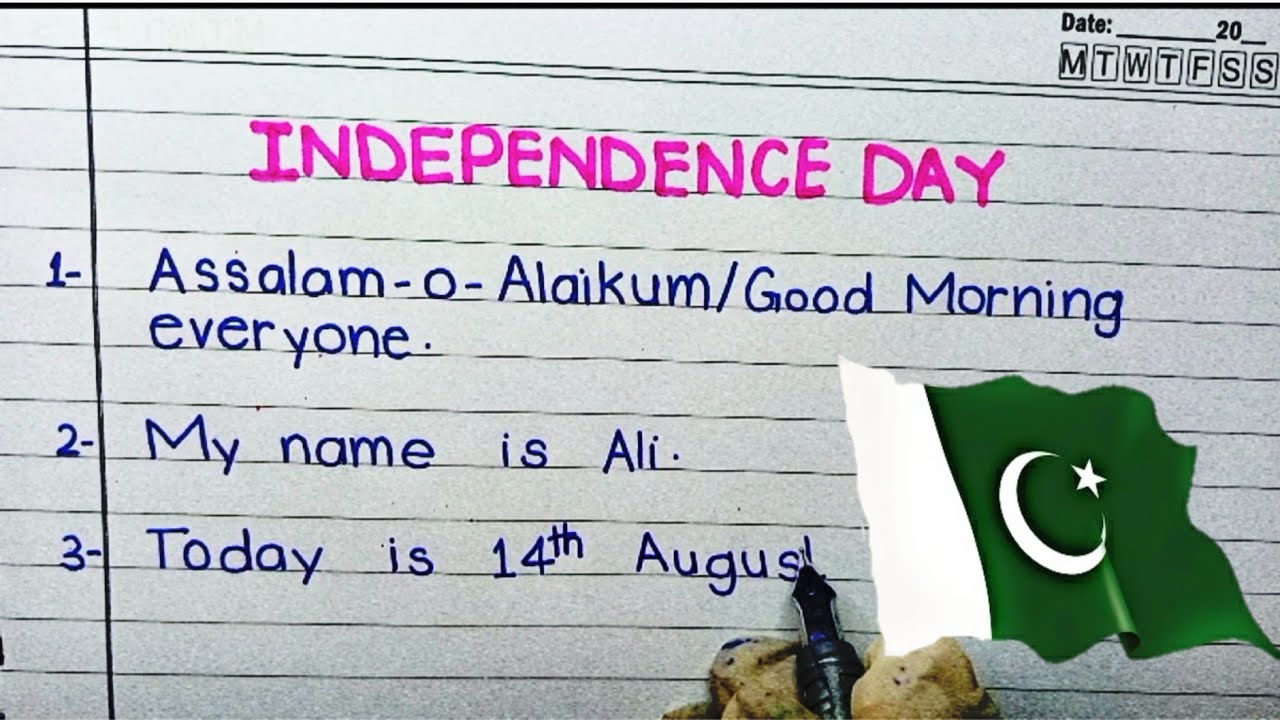 Date: ________20__
M T W T F S S
INDEPENDENCE DAY
1- Assalam-o-Alaikum/Good Morning
everyone.
2- My name is Ali.
3- Today is 14th August